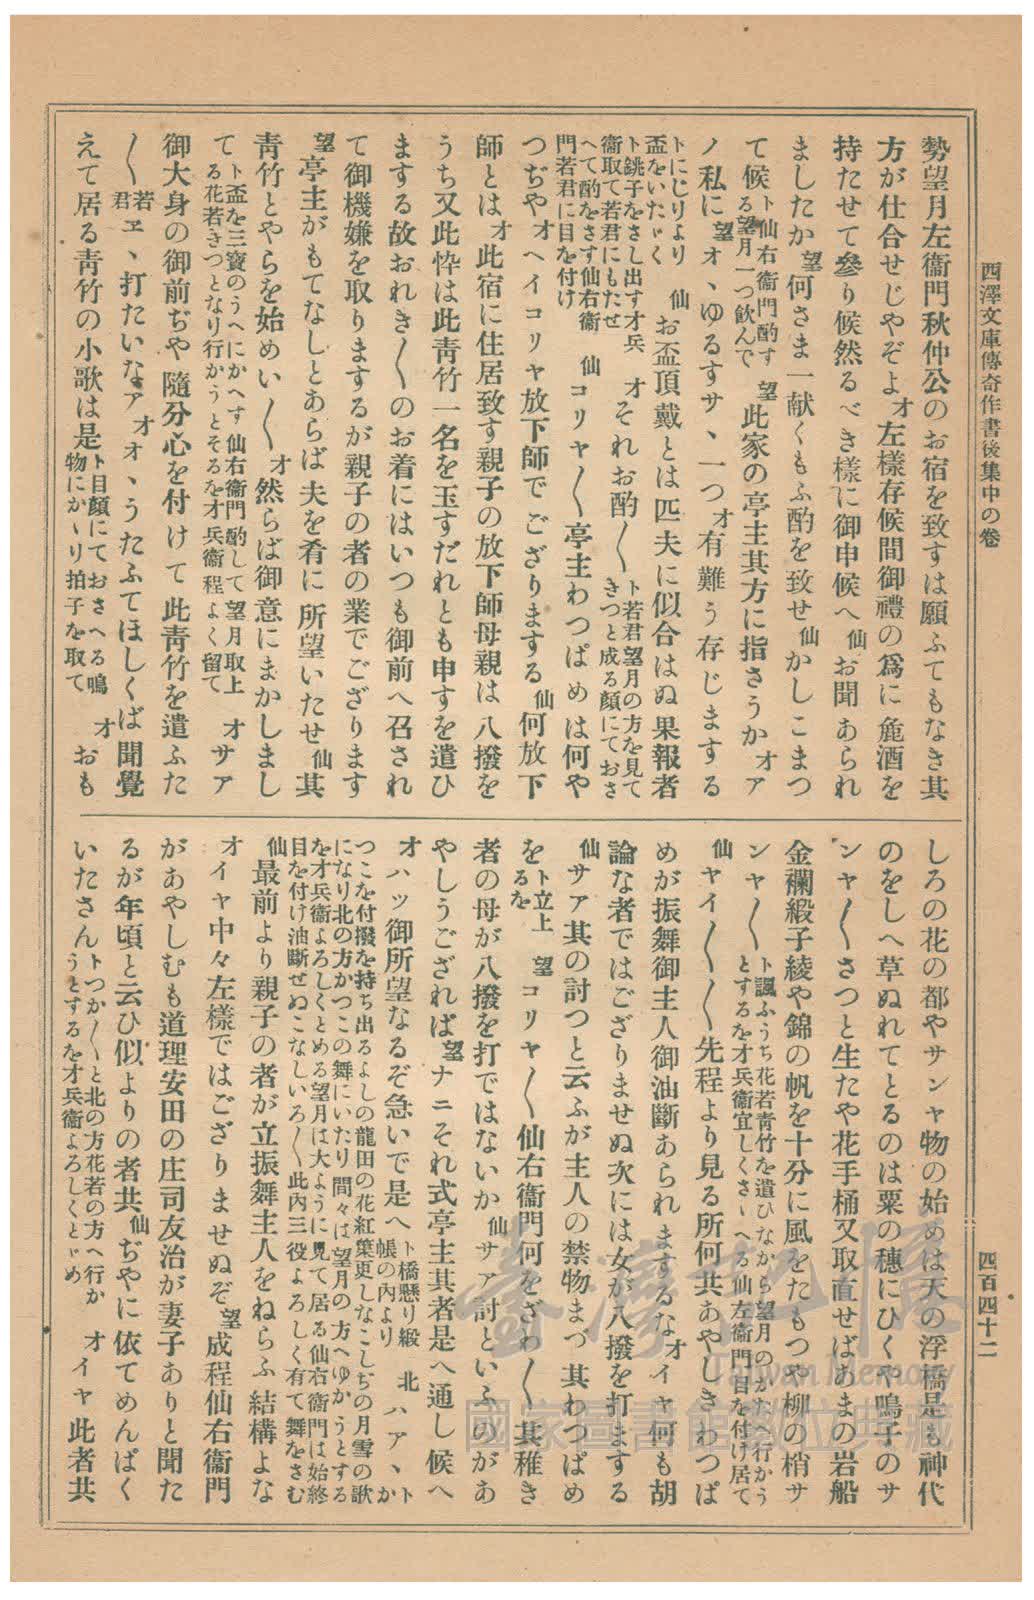 西澤文庫傳奇作書後集中の卷
四百四十二
勢望月左衞門秋仲公のお宿を致すは願ふてもなき其
方が仕合せじやぞよオ左樣存候間御禮の爲に麁酒を
持たせて參り候然るべき樣に御申候へ仙お聞あられ
ましたか望何さま一献くもふ酌を致せ仙かしこまつ
て候ト仙右衞門酌する望月一つ飮んで望此家の亭主其方に指さうかオア
ノ私に望オヽゆるすサヽ一つオ有難う存じまする
トにじりより盃をいたゞく仙お盃頂戴とは匹夫に似合はぬ果報者
ト銚子をさし出すオ兵衞取て若君にもたせオそれお酌〳〵ト若君望月の方を見てきつと成る顏にておさ
へて酌をさす仙右衞門若君に目を付け仙コリヤ〳〵亭主わつぱめは何や
つぢやオヘイコリヤ放下師でござりまする仙何放下
師とはオ此宿に住居致す親子の放下師母親は八撥を
うち又此忰は此靑竹一名を玉すだれとも申すを遣ひ
まする故おれき〳〵のお着にはいつも御前へ召され
て御機嫌を取りまするが親子の者の業でござります
望亭主がもてなしとあらば夫を肴に所望いたせ仙其
靑竹とやらを始めい〳〵オ然らば御意にまかしまし
てト盃を三寶のうへにかへす仙右衞門酌して望月取上る花若きつとなり行かうとそるをオ兵衞程よく留てオサア
御大身の御前ぢや隨分心を付けて此靑竹を遣ふた
〳〵若君ヱヽ打たいなアオオヽうたふてほしくば聞覺
えて居る靑竹の小歌は是ト目顏にておさへる鳴物にかゝり拍子を取てオおも
しろの花の都やサンヤ物の始めは天の浮橋是も神代
のをしへ草ぬれてとるのは粟の穗にひくや鳴子のサ
ンヤ〳〵さつと生たや花手桶又取直せばあまの岩船
金襴緞子綾や錦の帆を十分に風をたもつや柳の梢サ
ンヤ〳〵ト諷ふうち花若靑竹を遣ひなから望月のかたへ行かうとするをオ兵衞宜しくさゝへる仙左衞門目を付け居て
仙ヤイ〳〵〳〵先程より見る所何共あやしきわつぱ
めが振舞御主人御油斷あられまするなオイヤ何も胡
論な者ではござりませぬ次には女が八撥を打まする
仙サア其の討つと云ふが主人の禁物まづ其わつぱめ
をト立上るを望コリヤ〳〵仙右衞門何をざわ〳〵其稚き
者の母が八撥を打ではないか仙サア討といふのがあ
やしうござれば望ナニそれ式亭主其者是へ通し候へ
オハツ御所望なるぞ急いで是へト橋懸り緞帳の内より北ハアヽトか
つこを付撥を持ち出るよしの龍田の花紅葉更しなこしぢの月雪の歌になり北の方かつこの舞にいたり間々は望月の方へゆかうとする
をオ兵衞よろしくとめる望月は大ように見て居る仙右衞門は始終目を付け油斷せぬこなしいろ〳〵此内三役よろしく有て舞をさむ
仙最前より親子の者が立振舞主人をねらふ結構よな
オイヤ中々左樣ではござりませぬぞ望成程仙右衞門
があやしむも道理安田の庄司友治が妻子ありと聞た
るが年頃と云ひ似よりの者共仙ぢやに依てめんばく
いたさんトつか〳〵と北の方花若の方へ行かうとするをオ兵衞よろしくとゞめオイヤ此者共
臺灣記憶
Taiwan Memory
國家圖書館數位典藏